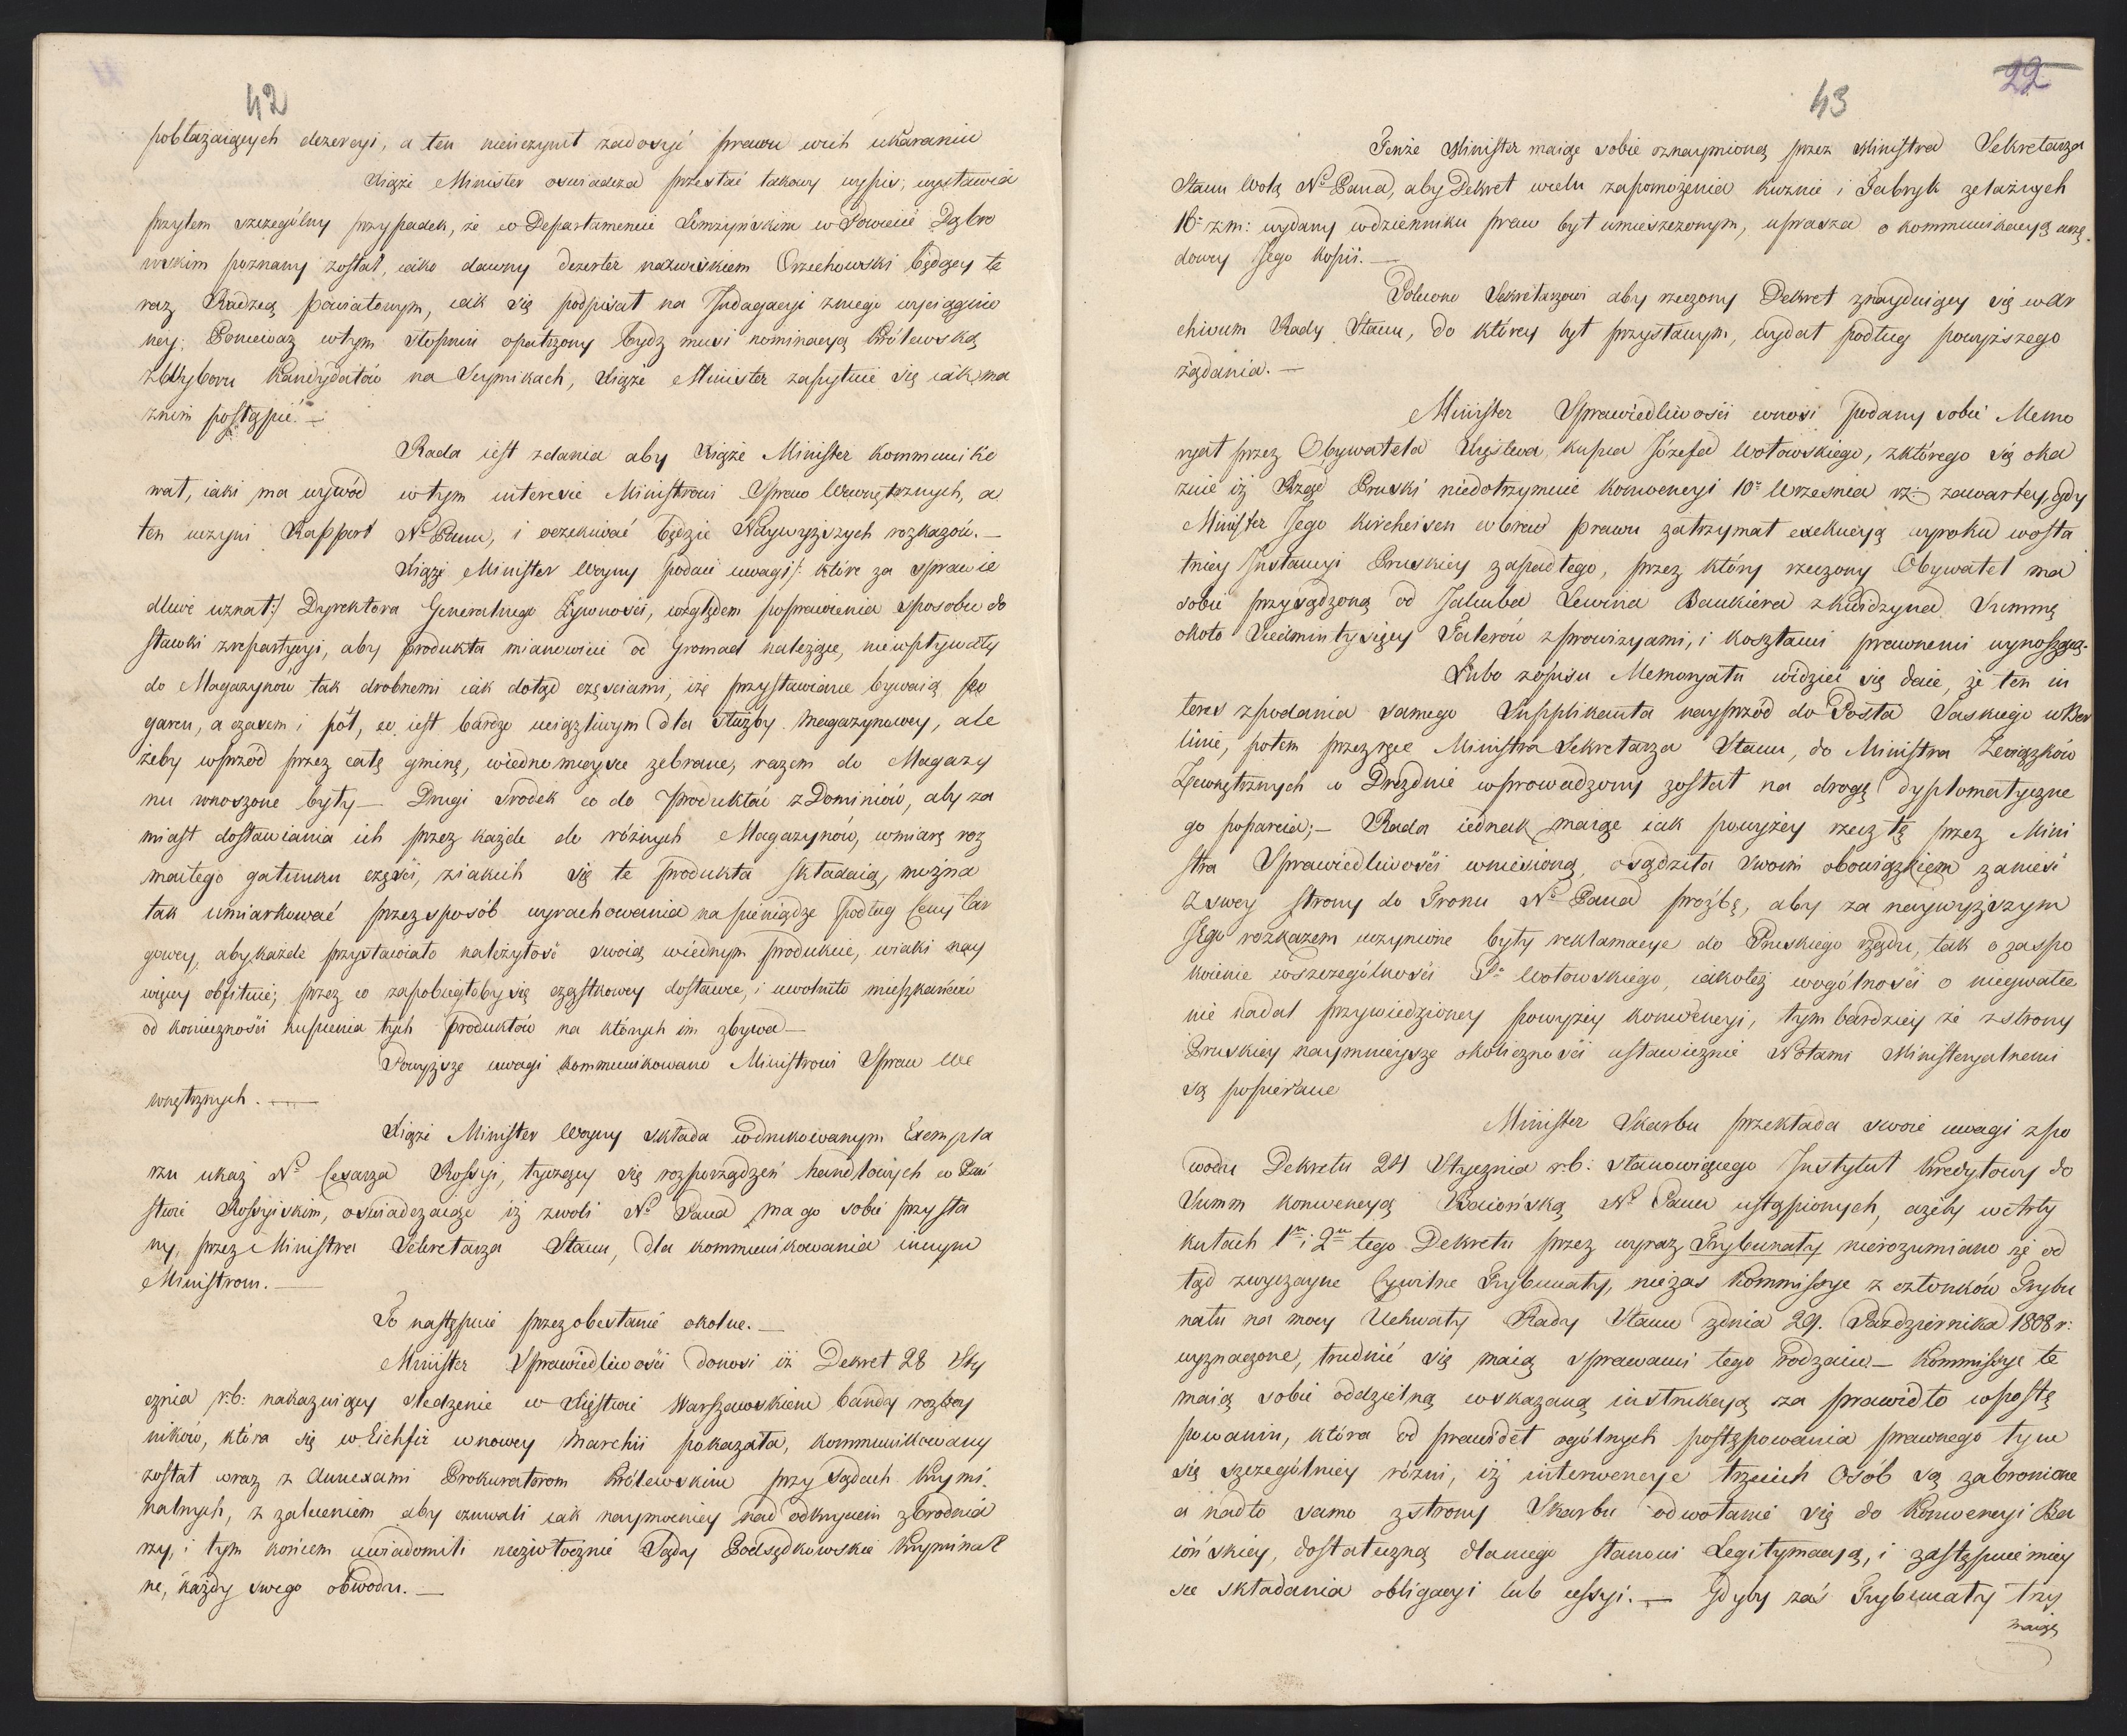 42
pobłazaiących dezercyi, a ten nieuczynił zadosyć prawu wich ukaraniu
Xiąże Minister oswiadcza przesłać takowy wypis; wystawia
przytem szczególny przypadek, że w Departamencie Łomżyńskim w Powiecie Dąbro
wskim poznany został, iako dawny dezerter nazwiskiem Orzechowski będący te
raz Radzcą powiatowym, iak się podpisał na Indagacyi zniego wyciągnio
ney. Ponieważ wtym stopniu opatrzony bydz musi nominacyą Królewską
z Wyboru Kandydatów na Seymikach, Xiąże Minister zapytuie się iak ma
znim postąpić. —
Rada iest zdania aby Xiąże Minister kommuniko
wał, iaki ma wywód wtym interesie Ministrowi Spraw Wewnętrznych, a
ten uczyni Rapport N° Panu, i oczekiwać będzie Naywyższych rozkazów. —
Xiąże Minister Woyny podaie uwagi /: które za sprawie
dliwe uznał :/ Dyrektora Generalnego Żywności, względem poprawienia sposobu do
stawki zrepartycyi, aby produkta mianowicie od gromad należące, niewpływały
do Magazynów tak drobnemi iak dotąd częsciami, iże przystawiane bywaią po
garcu, a czasem i pół, co iest bardzo uciążliwym dla służby magazynowey, ale
żeby wprzód przez całą gminę, wiedno mieysce zebrane, razem do Magazy
nu wnoszone były — Drugi srodek co do produktów z Dominiów, aby za
miast dostawiania ich przez każde do różnych Magazynów, wmiarę roz
maitego gatunku części, ziakich się te produkta składaią, można
tak umiarkować przez sposób wyrachowania na pieniądze podług Ceny Tar
gowey, aby każde przystawiało należytość swoią wiednym produkcie, wiaki nay
więcey obfituie; przez co zapobiegłoby się cząstkowey dostawie, i uwolniło mieszkańców
od konieczności kupienia tych produktów na których im zbywa —
Powyższe uwagi kommunikowano Ministrowi Spraw We
wnętrznych. —
Xiąże Minister Woyny składa wdrukowanym Exempla
rzu ukaz N° Cesarza Rossyi, tyczący się rozporządzeń handlowych w Pań
stwie Rossyiskim, oswiadczaiąc iż zwoli N° Pana ma go sobie przysła
ny, przez Ministra Sekretarza Stanu, dla kommunikowania innym
Ministrom. —
To następuie przez obesłanie okolne. —
Minister Sprawiedliwości donosi iż Dekret 28 Sty
cznia r.b: nakazuiący sledzenie w Xięstwie Warszawskiem bandy rozboy
ników, która się w Eichfir wnowey Marchii pokazała, kommunikowany
został wraz z Annexami Prokuratorom Królewskim przy Sądach Krymi
nalnych, z zaleceniem aby czuwali iak naymocniey nad odkryciem zbrodnia
rzy, i tym końcem uwiadomili niezwłocznie Sądy Podsędkowskie Kryminal
ne, każdy swego obwodu. —
43
22
Tenże Minister maiąc sobie oznaymioną przez Ministra Sekretarza
Stanu Wolą N° Pana, aby Dekret wcelu zapomożenia kuznic i Fabryk żelaznych
16° z.m: wydany wdzienniku praw był umieszczonym, uprasza o kommunikacyą urzę
dowey Jego kopii. —
Polecono Sekretarzowi aby rzeczony Dekret znayduiący się w Ar
chiwum Rady Stanu, do którey był przysłanym, wydał podług powyższego
żądania. —
Minister Sprawiedliwości wnosi podany sobie Memo
ryał przez Obywatela Xięstwa, kupca Józefa Wołowskiego, zktórego się oka
zuie iż Rząd Pruski niedotrzymuie konwencyi 10° Wrzesnia r.z: zawartey, gdy
Minister Jego Kircheisen wbrew prawu zatrzymał exekucyą wyroku wosta
tniey Instancyi Pruskiey zapadłego, przez który rzeczony Obywatel ma
sobie przysądzoną od Jakuba Lewina Bankiera z Kwidzyna Summę
około Siedmiu tysięcy Talerów z prowizyami, i kosztami prawnemi wynoszącą.
Lubo zopisu Memoryału widzieć się daie, że ten in
teres zpodania samego Supplikanta nayprzód do Posła Saskiego w Ber
linie, potem przez ręce Ministra Sekretarza Stanu, do Ministra Związków
Zewnętrznych w Dreźnie wprowadzony został na drogę dyplomatyczne
go poparcia; — Rada iednak maiąc iak powyżey rzecz tę przez Mini
stra Sprawiedliwości wniesioną, osądziła swoim obowiązkiem zanieść
z swey strony do Tronu N° Pana prożbę, aby za naywyższym
Jego rozkazem uczynione były reklamacye do Pruskiego rządu, tak o zaspo
koienie wszczególności P° Wołowskiego, iakoteż wogólności o niegwałce
nie nadal przywiedzioney powyżey konwencyi, tym bardziey że z strony
Pruskiey naymnieysze okoliczności ustawicznie Notami Ministeryalnemi
są popierane
Minister Skarbu przekłada swoie uwagi zpo
wodu Dekretu 24 Stycznia r.b: stanowiącego Instytut kredytowy do
Summ konwencyą Baiońską N° Panu ustąpionych, ażeby w Arty
kułach 1m i 2m tego Dekretu przez wyraz Trybunały nierozumiano się od
tąd zwyczayne Cywilne Trybunały, nie zas Kommissye z członków Trybu
nału na mocy Uchwały Rady Stanu zdnia 29. Pazdziernika 1808 r:
wyznaczone, trudnić się maią sprawami tego rodzaiu — Kommissye te
maią sobie oddzielną wskazaną instrukcyą za prawidło wpostę
powaniu, która od prawideł ogólnych postępowania prawnego tym
się szczególniey różni, iż interwencye trzecich Osób są zabronione
a nadto samo z strony Skarbu odwołanie się do Konwencyi Ba
iońskiey, dostateczną dlaniego stanowi Legitymacyą, i zastępuie miey
sce składania obligacyi lub cessyi. — Gdyby zaś Trybunały trzy
maiąc